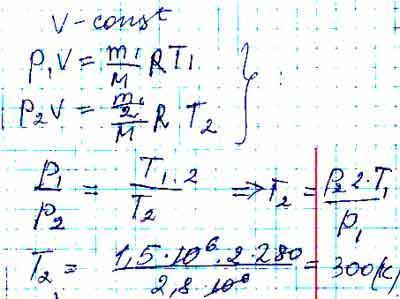 V-const
p₁V = m₁/M RT₁
p₂V = (m₁/2)/M R T₂
p₁/p₂ = T₁·2/T₂ => T₂ = p₂2·T₁/p₁
T₂ = 1,5·10⁶·2·280/2,8·10⁶ = 300(К)